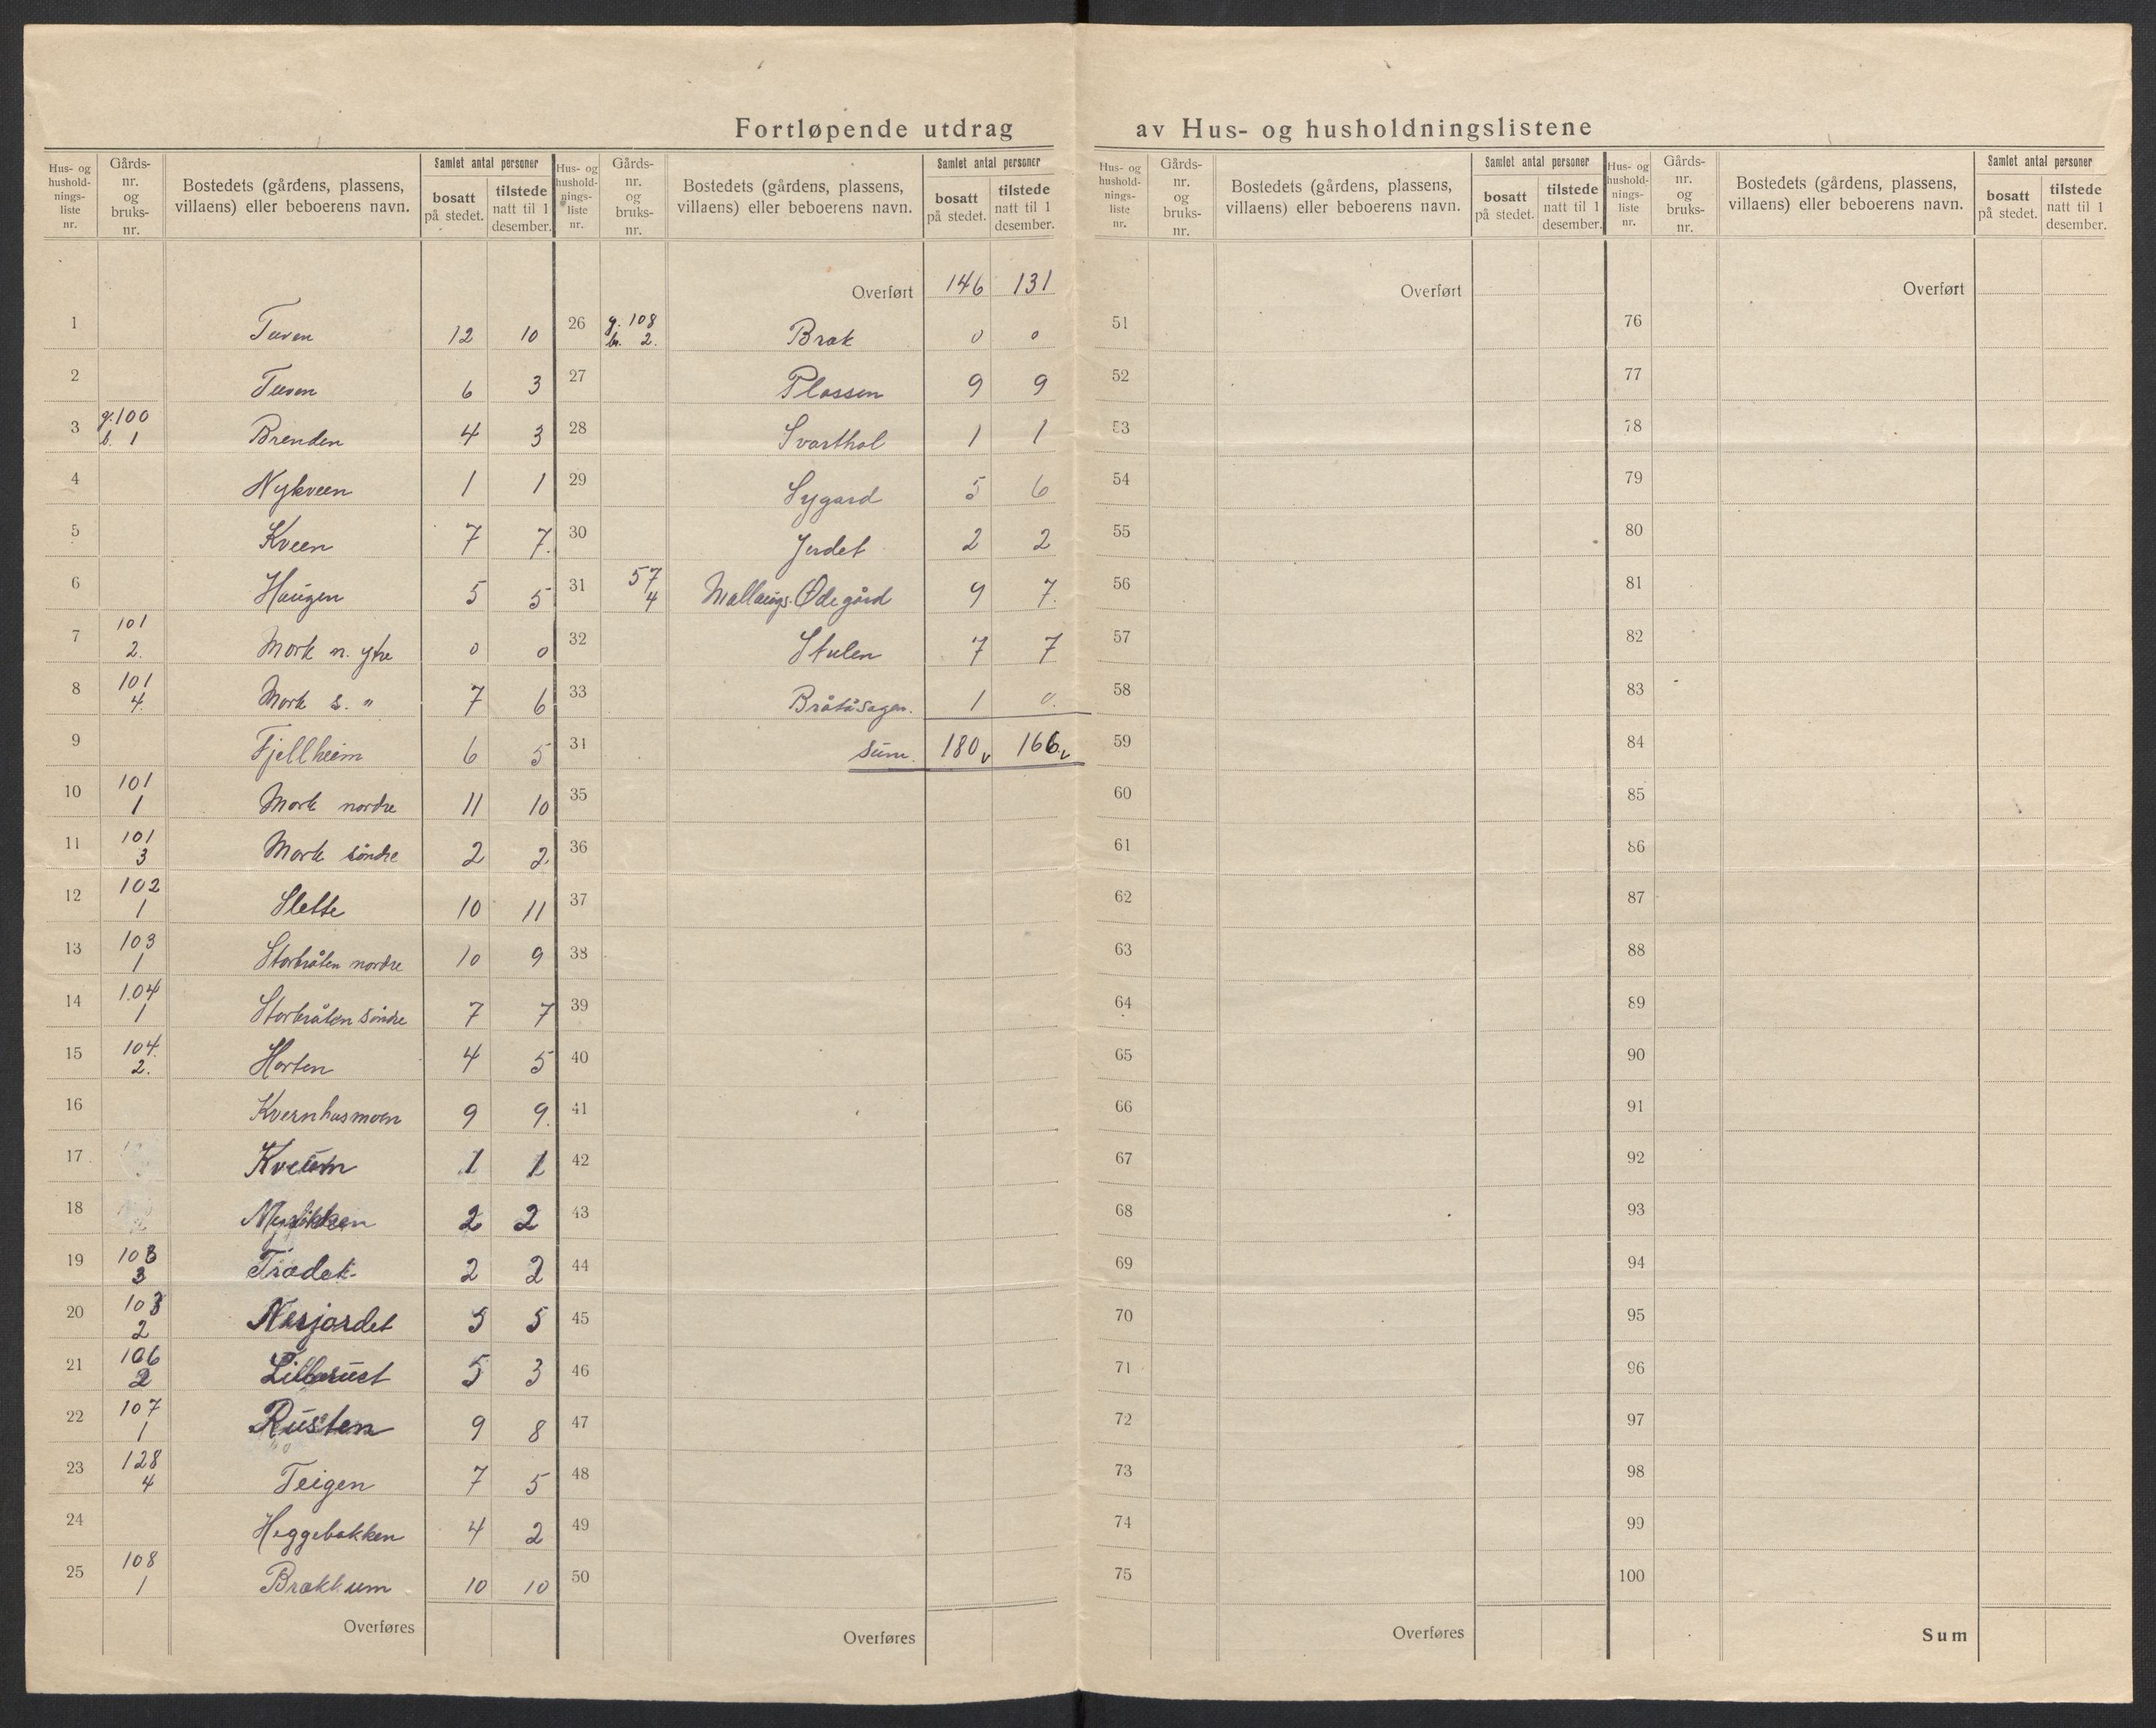 Fortløpende utdrag av Hus- og husholdningslistene
Hus- og husholdnings-liste nr. | Gårds-nr. og bruks-nr. | Bostedets (gårdens, plassens, villaens) eller beboerens navn. | Samlet antal personer | bosatt på stedet. | tilstede natt til 1 desember.
1 Tuven 12 10
2 Tuven 6 3
3 g. 100 b. 1 Brenden 4 3
4 Nykveen 1 1
5 Kveen 7 7.
6 Haugen 5 5
7 101 2. Mork n. ytre 0 0
8 101 4. Mork s. " 7 6
9 Fjellheim 6 5
10 101 1 Mork nordre 11 10
11 101 3 Mork söndre 2 2
12 102 1 Slette 10 11
13 103 1 Storbråten nordre 10 9
14 104 1 Storbråten söndre 7 7
15 104. 2. Horten 4 5
16 Kvernhusmoen 9 9.
17 1 1
18 2 2
19 103 3 Trædet 2 2
20 103 2 Nesjordet 5 5
21 106 2 Lillerust 5 3
22 107 1 Rusten 9 8
23 128 4 Teigen 7 5
24 Heggebakken 4 2
25 108 1 Brækkum 10 10
Overføres
Hus- og husholdnings-liste nr. | Gårds-nr. og bruks-nr. | Bostedets (gårdens, plassens, villaens) eller beboerens navn. | Samlet antal personer | bosatt på stedet. | tilstede natt til 1 desember.
Overført 146 131
26 g. 108 br. 2. Bræk 0 0
27 Plassen 9 9
28 Svarthol 1 1
29 Sygard 5 6
30 Jordet 2 2
31 57 4 Mallaugs-Ødegård 9 7.
32 Stulen 7 7
33 Bråtåsagen. 1 0.
31 Sum. 180 v 166 v
35
36
37
38
39
40
41
42
43
44
45
46
47
48
49
50
Overføres
Hus- og husholdnings-liste nr. | Gårds-nr. og bruks-nr. | Bostedets (gårdens, plassens, villaens) eller beboerens navn. | Samlet antal personer | bosatt på stedet. | tilstede natt til 1 desember.
Overført
51
52
53
54
55
56
57
58
59
60
61
62
63
64
65
66
67
68
69
70
71
72
73
74
75
Overføres
Hus- og husholdnings-liste nr. | Gårds-nr. og bruks-nr. | Bostedets (gårdens, plassens, villaens) eller beboerens navn. | Samlet antal personer | bosatt på stedet. | tilstede natt til 1 desember.
Overført
76
77
78
79
80
81
82
83
84
85
86
87
88
89
90
91
92
93
94
95
96
97
98
99
100
Sum